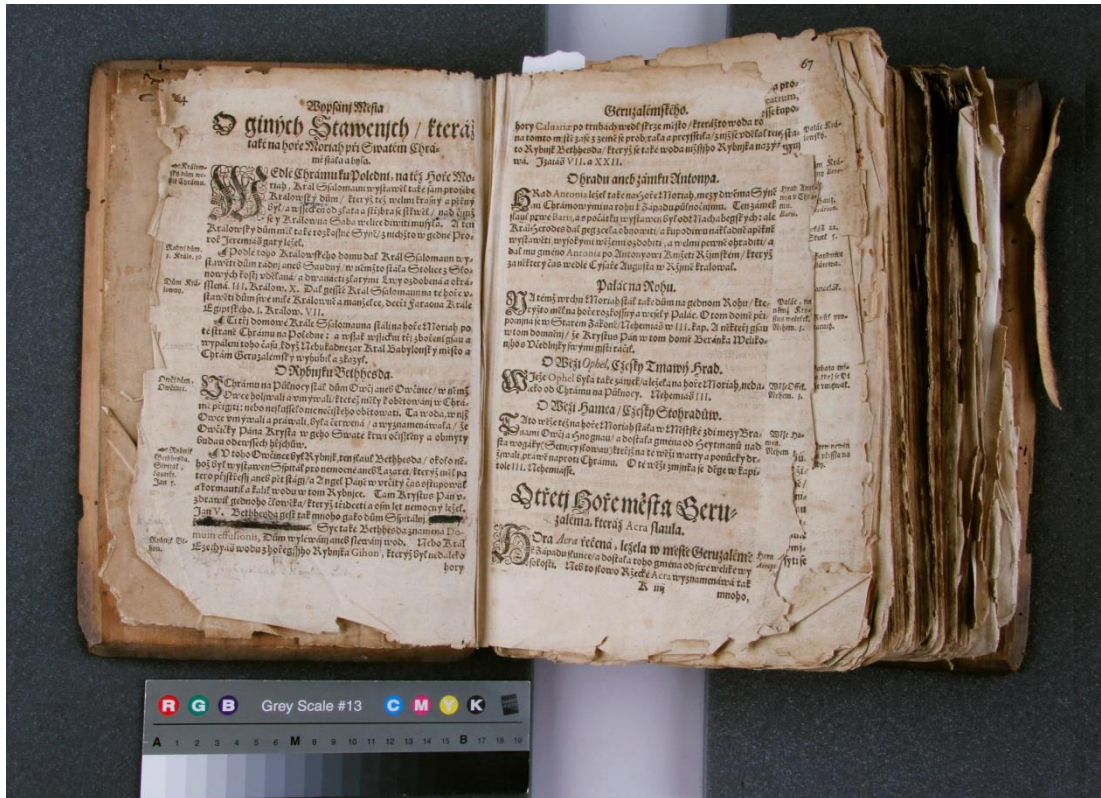 Wypsánj Města
O giných Stawenjch / kteráž
také na hoře Moriah při Swatém Chrá-
mě stála a byla.
WEdlé Chrámu ku Poledni, na též Hoře Mo-
riah, Král Salomaun wystawěl také sám pro sebe
Králowský dům / kterýž též welmi krásný a pěkný
byl, a wssecken od zlata a střjbra se stkwěl / nad čjmž
se y Králowna Saba welice diwiti musyla. A ten
Králowský dům měl také rozkossné Syně / z nichžto w gedné Pro-
rok Jeremiáš gatý ležel.
Podlé toho Králowského domu dal Král Salomaun wy-
stawěti dům radnj aneb Saudný / w němžto stála Stolice z Slo-
nowých kostj vdělaná / a dwanácti zlatými Lwy ozdobená a okrá-
sslená. III. Králow. X. Dal gesstě Král Salomaun na té hoře w-
stawěti dům swé milé Králowně a manželce, dceři Faraona Krále
Egiptského. I. Králow. VII.
Ti tři domowé Krále Salomauna stáli na hoře Moriah po
té straně Chrámu na Poledne: a wssak wssickni tři zbořeni gsau a
wypáleni toho času / když Nebukadnezar Král Babylonský město a
Chrám Geruzalémský wyhubil a zkazyl.
O Rybnjku Bethhesda.
V Chrámu na Půlnocy stál dům Owčj aneb Owčinec / w němž
Owce holjwali a vmýwali / kteréž měly k obětowánj w Chrá-
mě přigjti: nebo neslussělo nic nečistého obětowati. Ta woda, w njž
Owce vmýwali a práwali, byla čerwená / a wyznamenáwala / že
Owčičky Pána Krysta w geho Swaté krwi očisstěny a obmyty
budau od wssech hřjchůw.
V toho Owčince byl Rybnjk, ten slaul Bethhesda / okolo ně-
hož byl wystawen Sspitál pro nemocné aneb Lazaret / kterýž měl pa-
tero přjstřessj aneb pět stágj / a Angel Páně w určitý čas sstupowal
a kormautil a kalil wodu w tom Rybnjce. Tam Krystus Pán v-
zdrawil gednoho člowěka / kterýž třidceti a osm let nemocný ležel.
Jan V. Bethhesda gest tak mnoho gako dům Sspitálnj
Syc také Bethhesda znamená Do-
mum effusionis, Dům wyléwánj aneb sléwánj wod. Nebo Král
Ezechyáš wodu z hořegssjho Rybnjka Gihon / kterýž byl nedaleko
hory
Králow-
ský dům we-
dlé Chrámu.
Radnj dům.
3. Král. 10.
Dům Krá-
lowny.
Owčj dům.
Owčinec.
Rybnjk
Bethhesda.
Sspitál,
Lazaret.
Jan 5.
Rybnjk Gi-
hon.
Geruzalémského.
67
hory Caluariæ po trubách wedl skrze město / kterážto woda to
na tomto mjstě zase z země se probyrala a pryštila / z njž se vdělal ten sta-
to Rybnjk Bethhesda / kterýž se také woda nižssjho Rybnjka nazý-
wá. Izaiáš VII. a XXII.
O hradu aneb zámku Antonya.
HRad Antonia ležel také na Hoře Moriah, mezy dwěma Syně-
mi Chrámowými na rohu k Západu půlnočnjmu. Ten zámek
slaul prwé Baris, a s počátku wystawen byl od Machabegských: ale
Král Herodes dal geg zcela obnowiti / a ku podiwu nákladně a pěkně
wystawěti, wysokými wěžemi ozdobiti, a welmi pewně ohraditi / a
dal mu gméno Antonia po Antonyowi Knjžeti Řjmském / kterýž
za některý čas wedlé Cýsaře Augusta w Řjmě kralowal.
Palác na Rohu.
NA témž wrchu Moriah stál také dům na gednom Rohu / kte-
rýžto měl na hoře rozkossný a weselý Palác. O tom domě při-
pomjná se w Starém Zákoně / Nehemiáš w III. kap. A někteřj gsau
w tom domněnj / že Krystus Pán w tom domě Beránka Weliko-
nočnjho s Včedlnjky swými gjsti ráčil.
O Wěži Ophel, Cžesky Tmawý Hrad.
WJeže Ophel byla také zámek / a ležela na hoře Moriah, neda-
leko od Chrámu na Půlnocy. Nehemiáš III.
O Wěži Hamea / Cžesky Stohradůw.
TAto wěže též na hoře Moriah stála w Městské zdi mezy Bra-
nami Owčj a Hnognau / a dostala gméno od Heytmanů nad
sta wogáky (Setnjcy slowau) kteřjž na té wěži warty a ponůcky dr-
žjwali, práwě naproti Chrámu. O té wěži zmjnka se děge w kapi-
tole III. Nehemiásse.
O třetj Hoře města Geru-
zaléma, kteráž Acra slaula.
HOra Acra řečená, ležela w městě Geruzalémě
k Západu slunce / a dostala toho gména od swé weliké wy-
sokosti. Neb to slowo Řzecké Acra wyznamenáwá tak
K iiij
mnoho,
Palác na
němž Krystus
Nehem. 3.
Wěže Ofel.
Nehem. 3.
Wěže Ha-
mea.
Nehem 3.
R G B Grey Scale #13 C M Y K
A 1 2 3 4 5 6 M 8 9 10 11 12 13 14 15 B 17 18 19